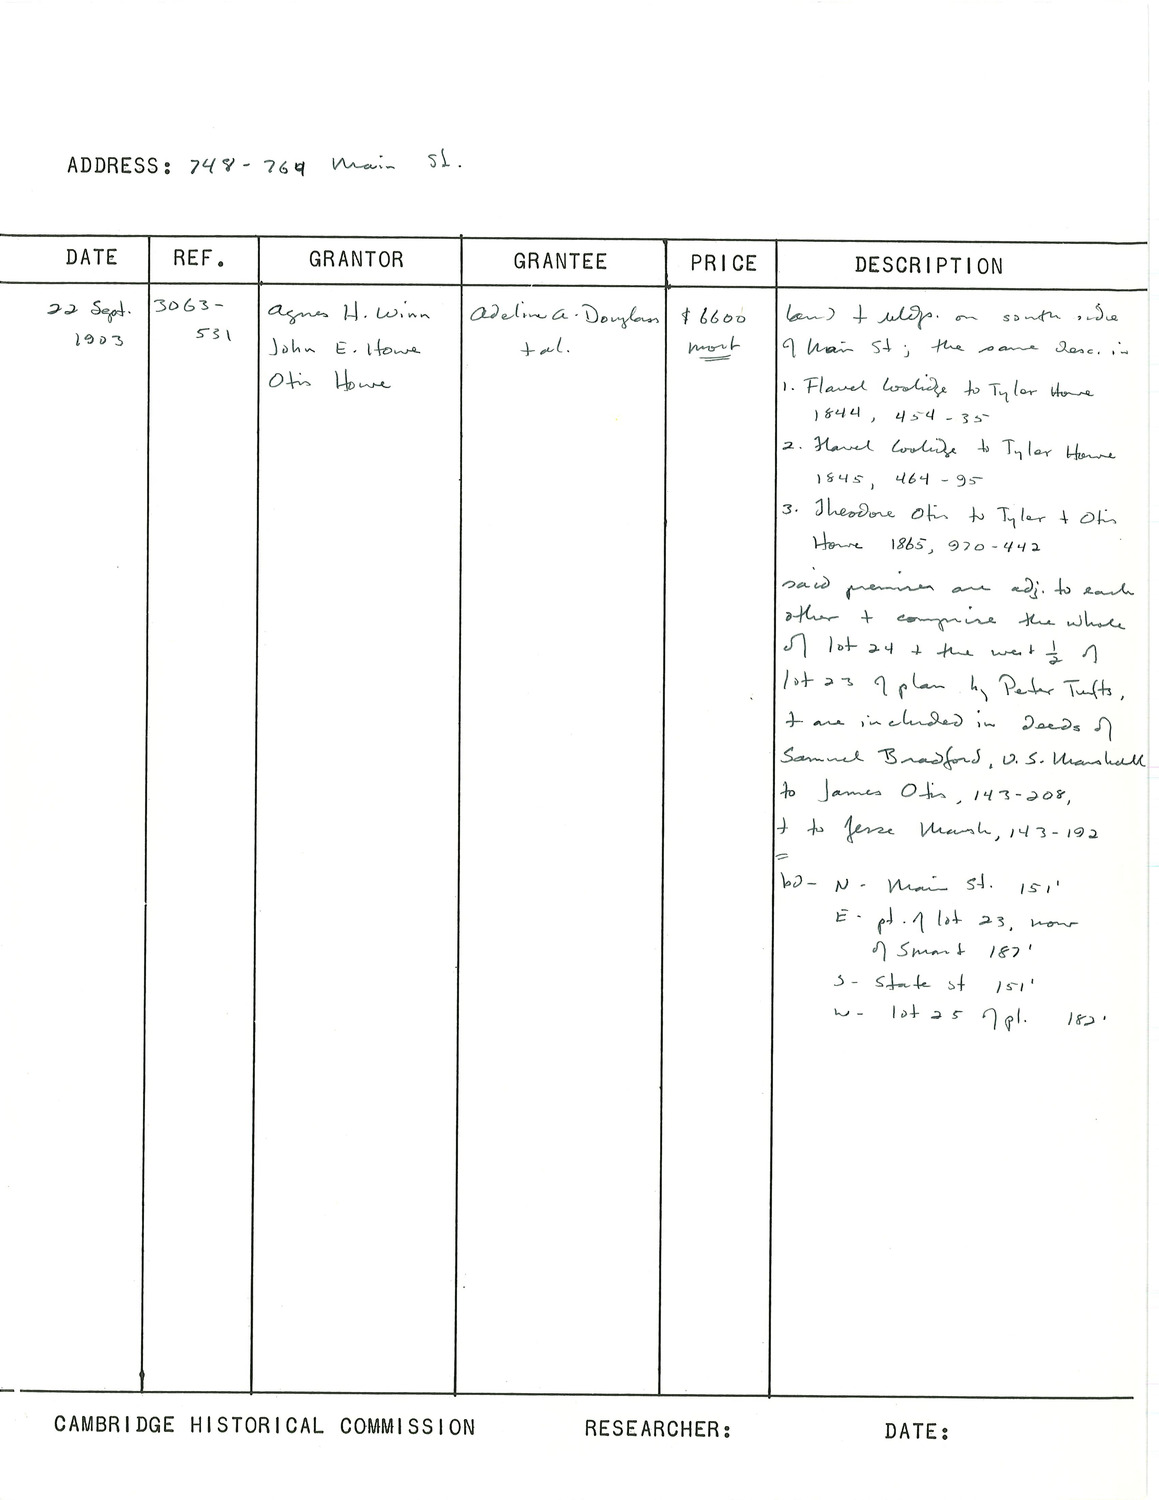 ADDRESS: 748-764 Main St.
DATE REF. GRANTOR GRANTEE PRICE DESCRIPTION
22 Sept.
1903
3063-
531
Agnes H. Winn
John E. Howe
Otis Howe
Adeline A. Douglass
+ al.
$6600
mort
land + bldgs. on south side
of Main St; the same desc. in
1. Flavel Coolidge to Tyler Howe
1844, 454-35
2. Flavel Coolidge to Tyler Howe
1845, 464-95
3. Theodore Otis to Tyler + Otis
Howe 1865, 970-442
said premises are adj. to each
other + comprise the whole
of lot 24 + the west 1/2 of
lot 23 of plan by Peter Tufts,
+ are included in deeds of
Samuel Bradford, U.S. Marshall
to James Otis, 143-208,
+ to Jesse Marsh, 143-192
=
bd- N - Main St. 151'
E - pt. of lot 23, now
of Smart 187'
S - State st 151'
W - lot 25 of pl. 182'
CAMBRIDGE HISTORICAL COMMISSION RESEARCHER: DATE: